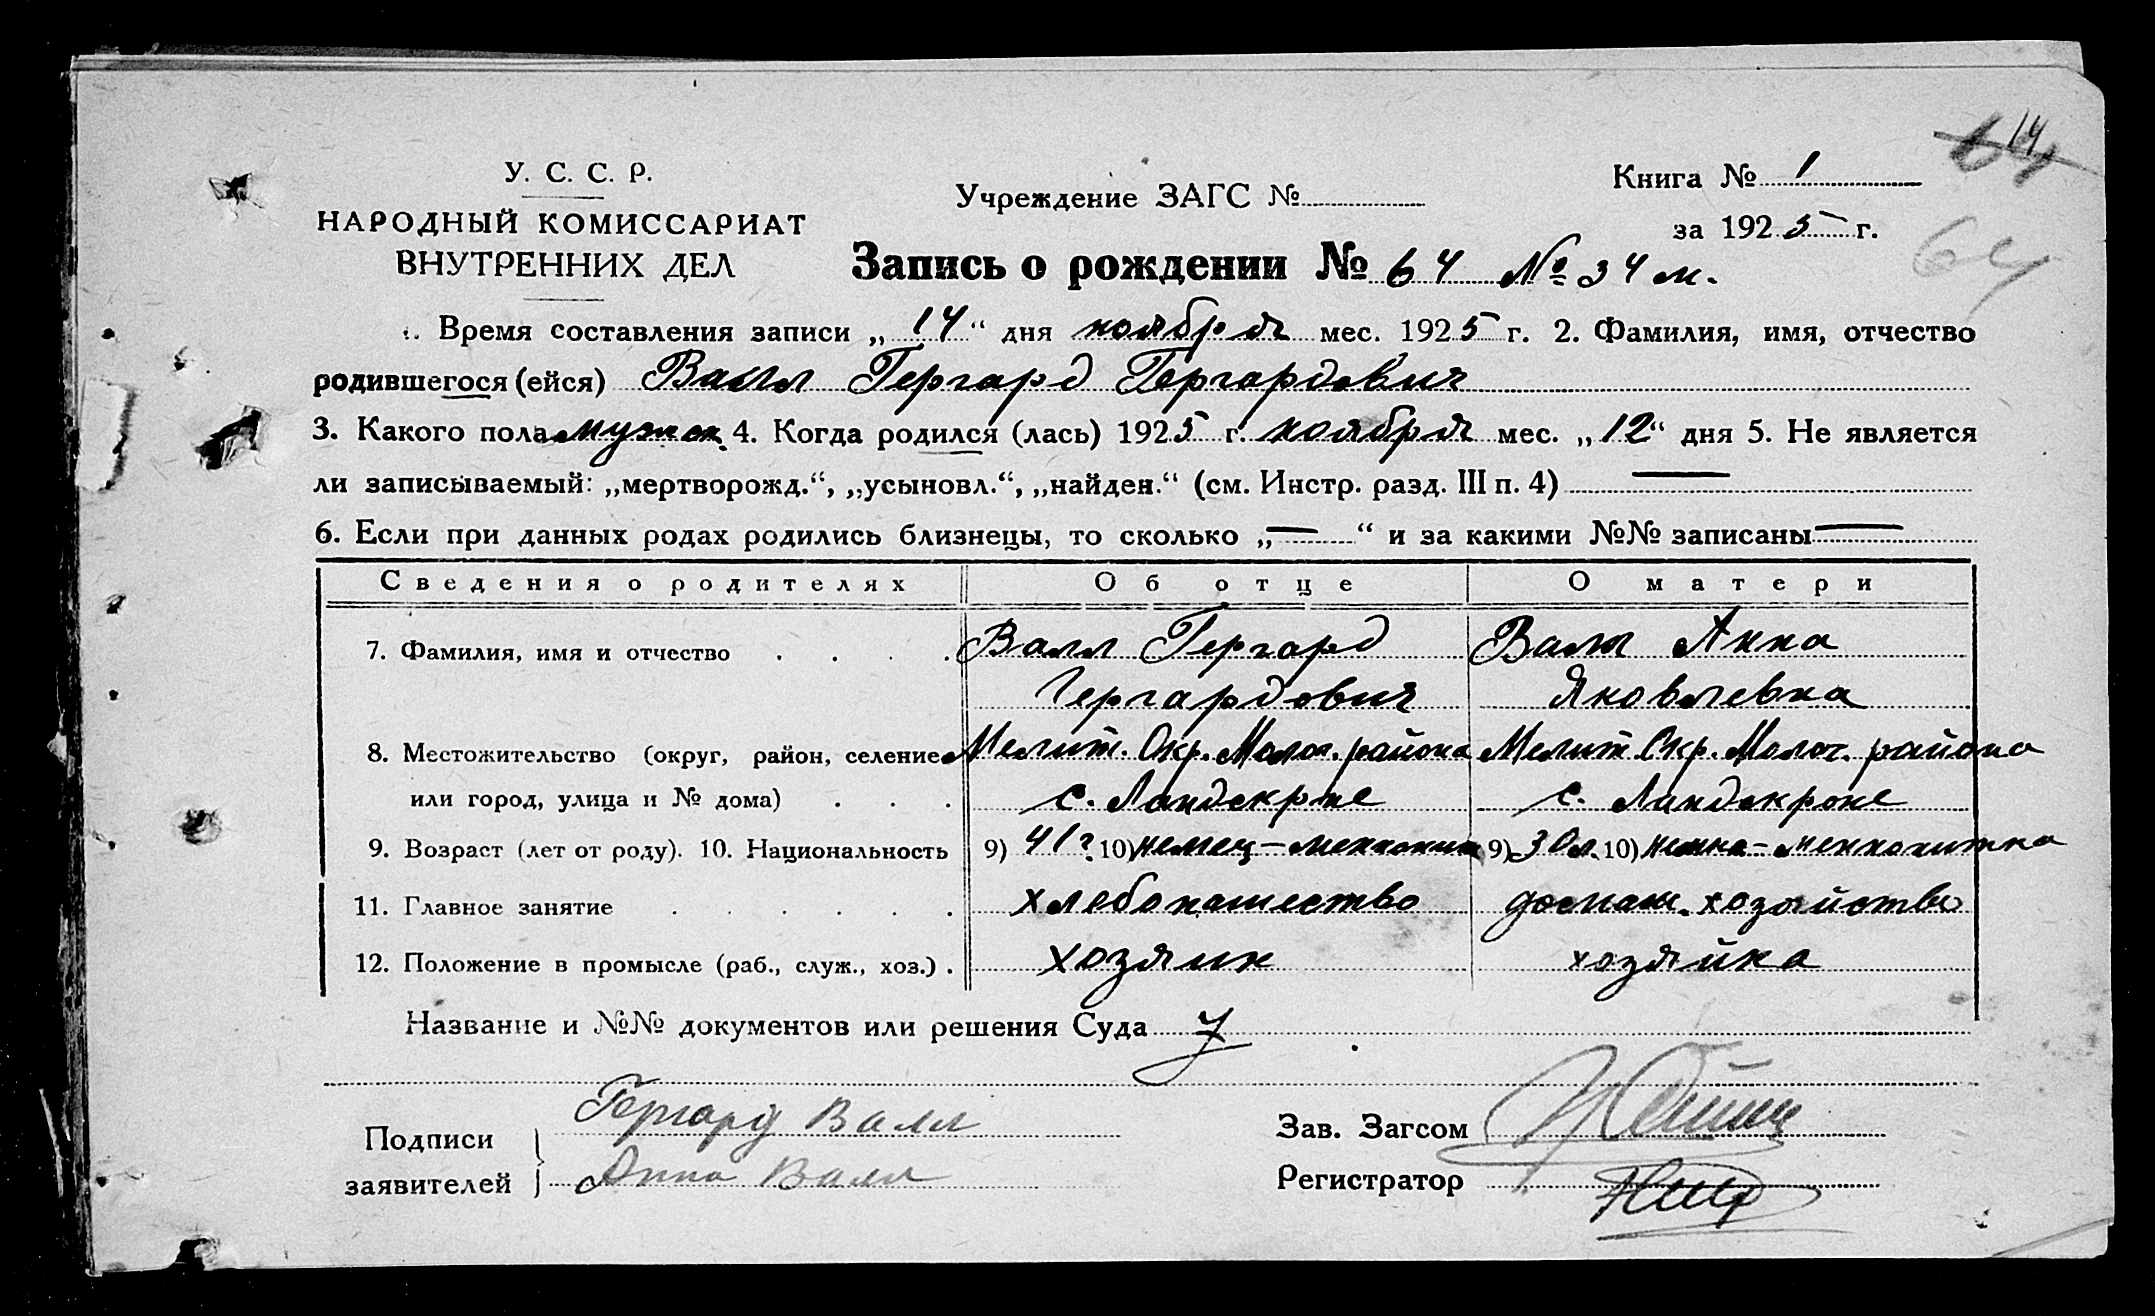 14
64
У. С. С. Р.
НАРОДНЫЙ КОМИССАРИАТ
ВНУТРЕННИХ ДЕЛ
Учреждение ЗАГС №
Книга № 1
за 1925 г.
64
Запись о рождении № 64 № 34 м.
1. Время составления записи „14“ дня ноября мес. 1925 г. 2. Фамилия, имя, отчество
родившегося (ейся) Валл Гергард Гергардович
3. Какого пола мужск. 4. Когда родился (лась) 1925 г. ноября мес. „12“ дня 5. Не является
ли записываемый: „мертворожд.“, „усыновл.“, „найден.“ (см. Инстр. разд. III п. 4) —
6. Если при данных родах родились близнецы, то сколько „—“ и за какими №№ записаны —
Сведения о родителях Об отце О матери
7. Фамилия, имя и отчество . . . . Валл Гергард Валл Анна
Гергардович Яковлевна
8. Местожительство (округ, район, селение Мелит. Окр. Молоч. района Мелит. Окр. Молоч. района
или город, улица и № дома) . . . с. Ландскроне с. Ландскроне
9. Возраст (лет от роду). 10. Национальность 9) 41 г. 10) немец – меннонит 9) 30 л. 10) немка – меннонитка
11. Главное занятие . . . . . . хлебопашество домаш. хозяйство
12. Положение в промысле (раб., служ., хоз.) . хозяин хозяйка
Название и №№ документов или решения Суда
Подписи Гергард Валл
заявителей Анна Валл
Зав. Загсом
Регистратор